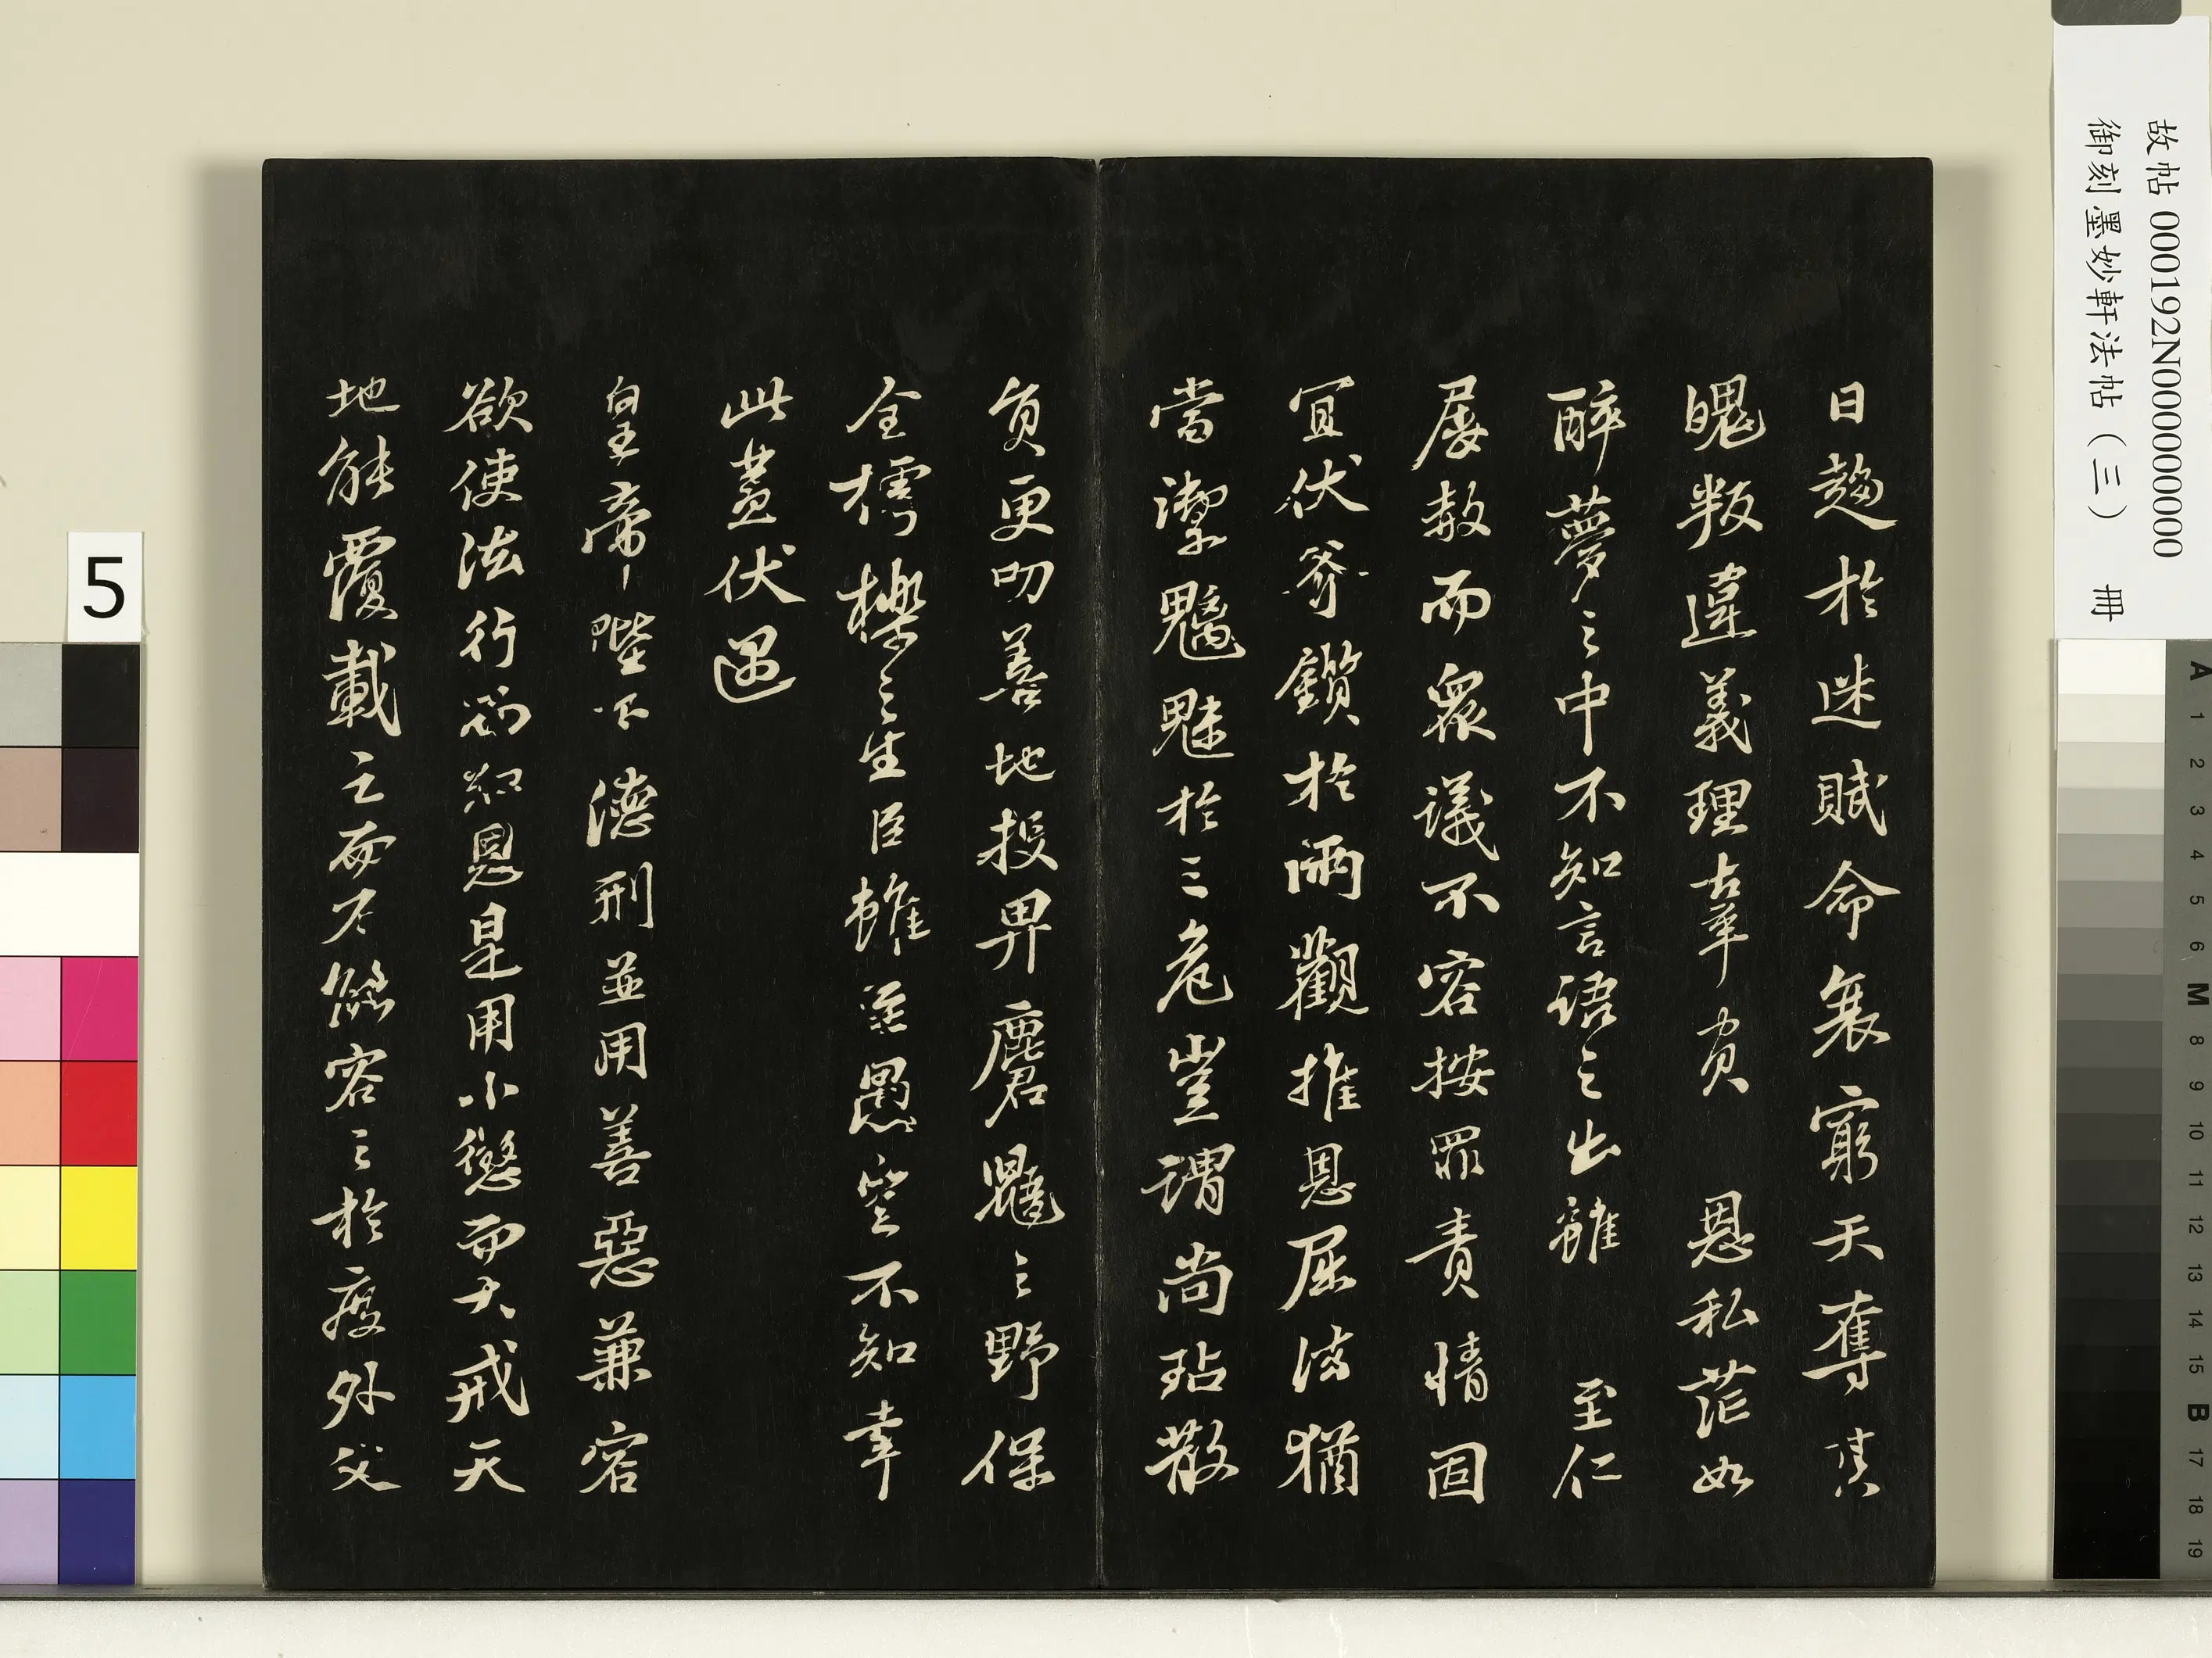 故帖 000192N000000000
御刻墨妙軒法帖(三) 冊
日趨於迷賦命衰窮天奪其
魄叛違義理辜負恩私茫如
醉夢之中不知言語之出雖至仁
屢赦而眾議不容按罪責情固
宜伏斧鑕於兩觀推恩屈法猶
當禦魑魅於三危豈謂尚玷散
員更叨善地投畀麏鼯之野保
全樗櫟之生臣雖至愚豈不知幸
此蓋伏遇
皇帝陛下德刑並用善惡兼容
欲使法行而知恩是用小懲而大戒天
地能覆載之而不能容之於度外父
5
A 1 2 3 4 5 6 M 8 9 10 11 12 13 14 15 B 17 18 19